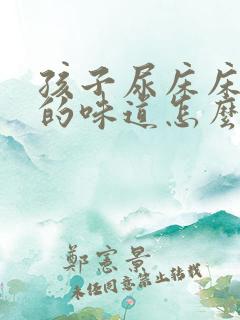 孩子尿床床
的味道怎麼
鄭憲景
未任同意禁止转载